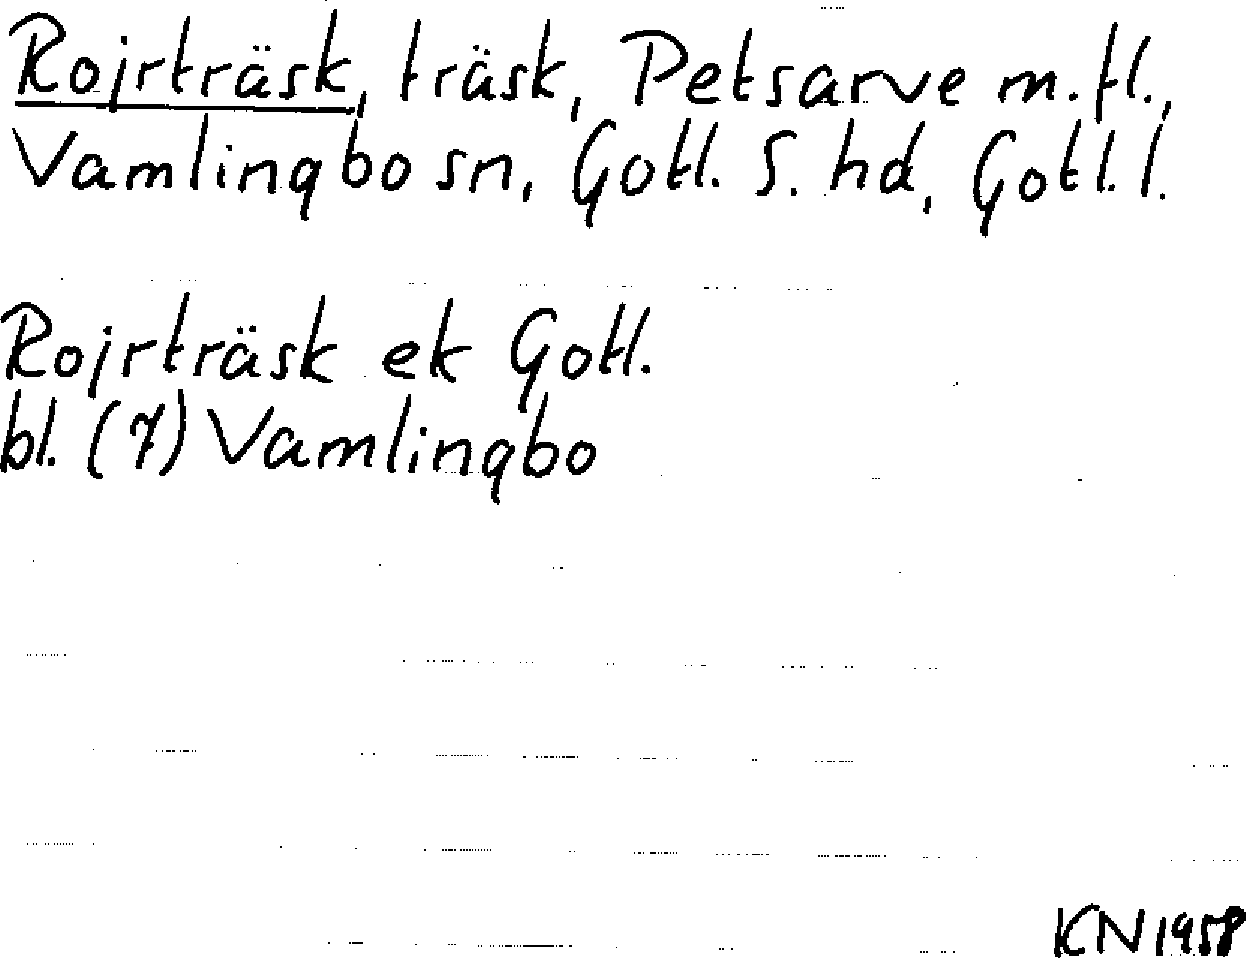 Rojrträsk, träsk, Petsarve m.fl.,
Vamlingbo sn, Gotl. S. hd, Gotl. l.
Rojrträsk ek Gotl.
bl. (7) Vamlingbo
KN 1958